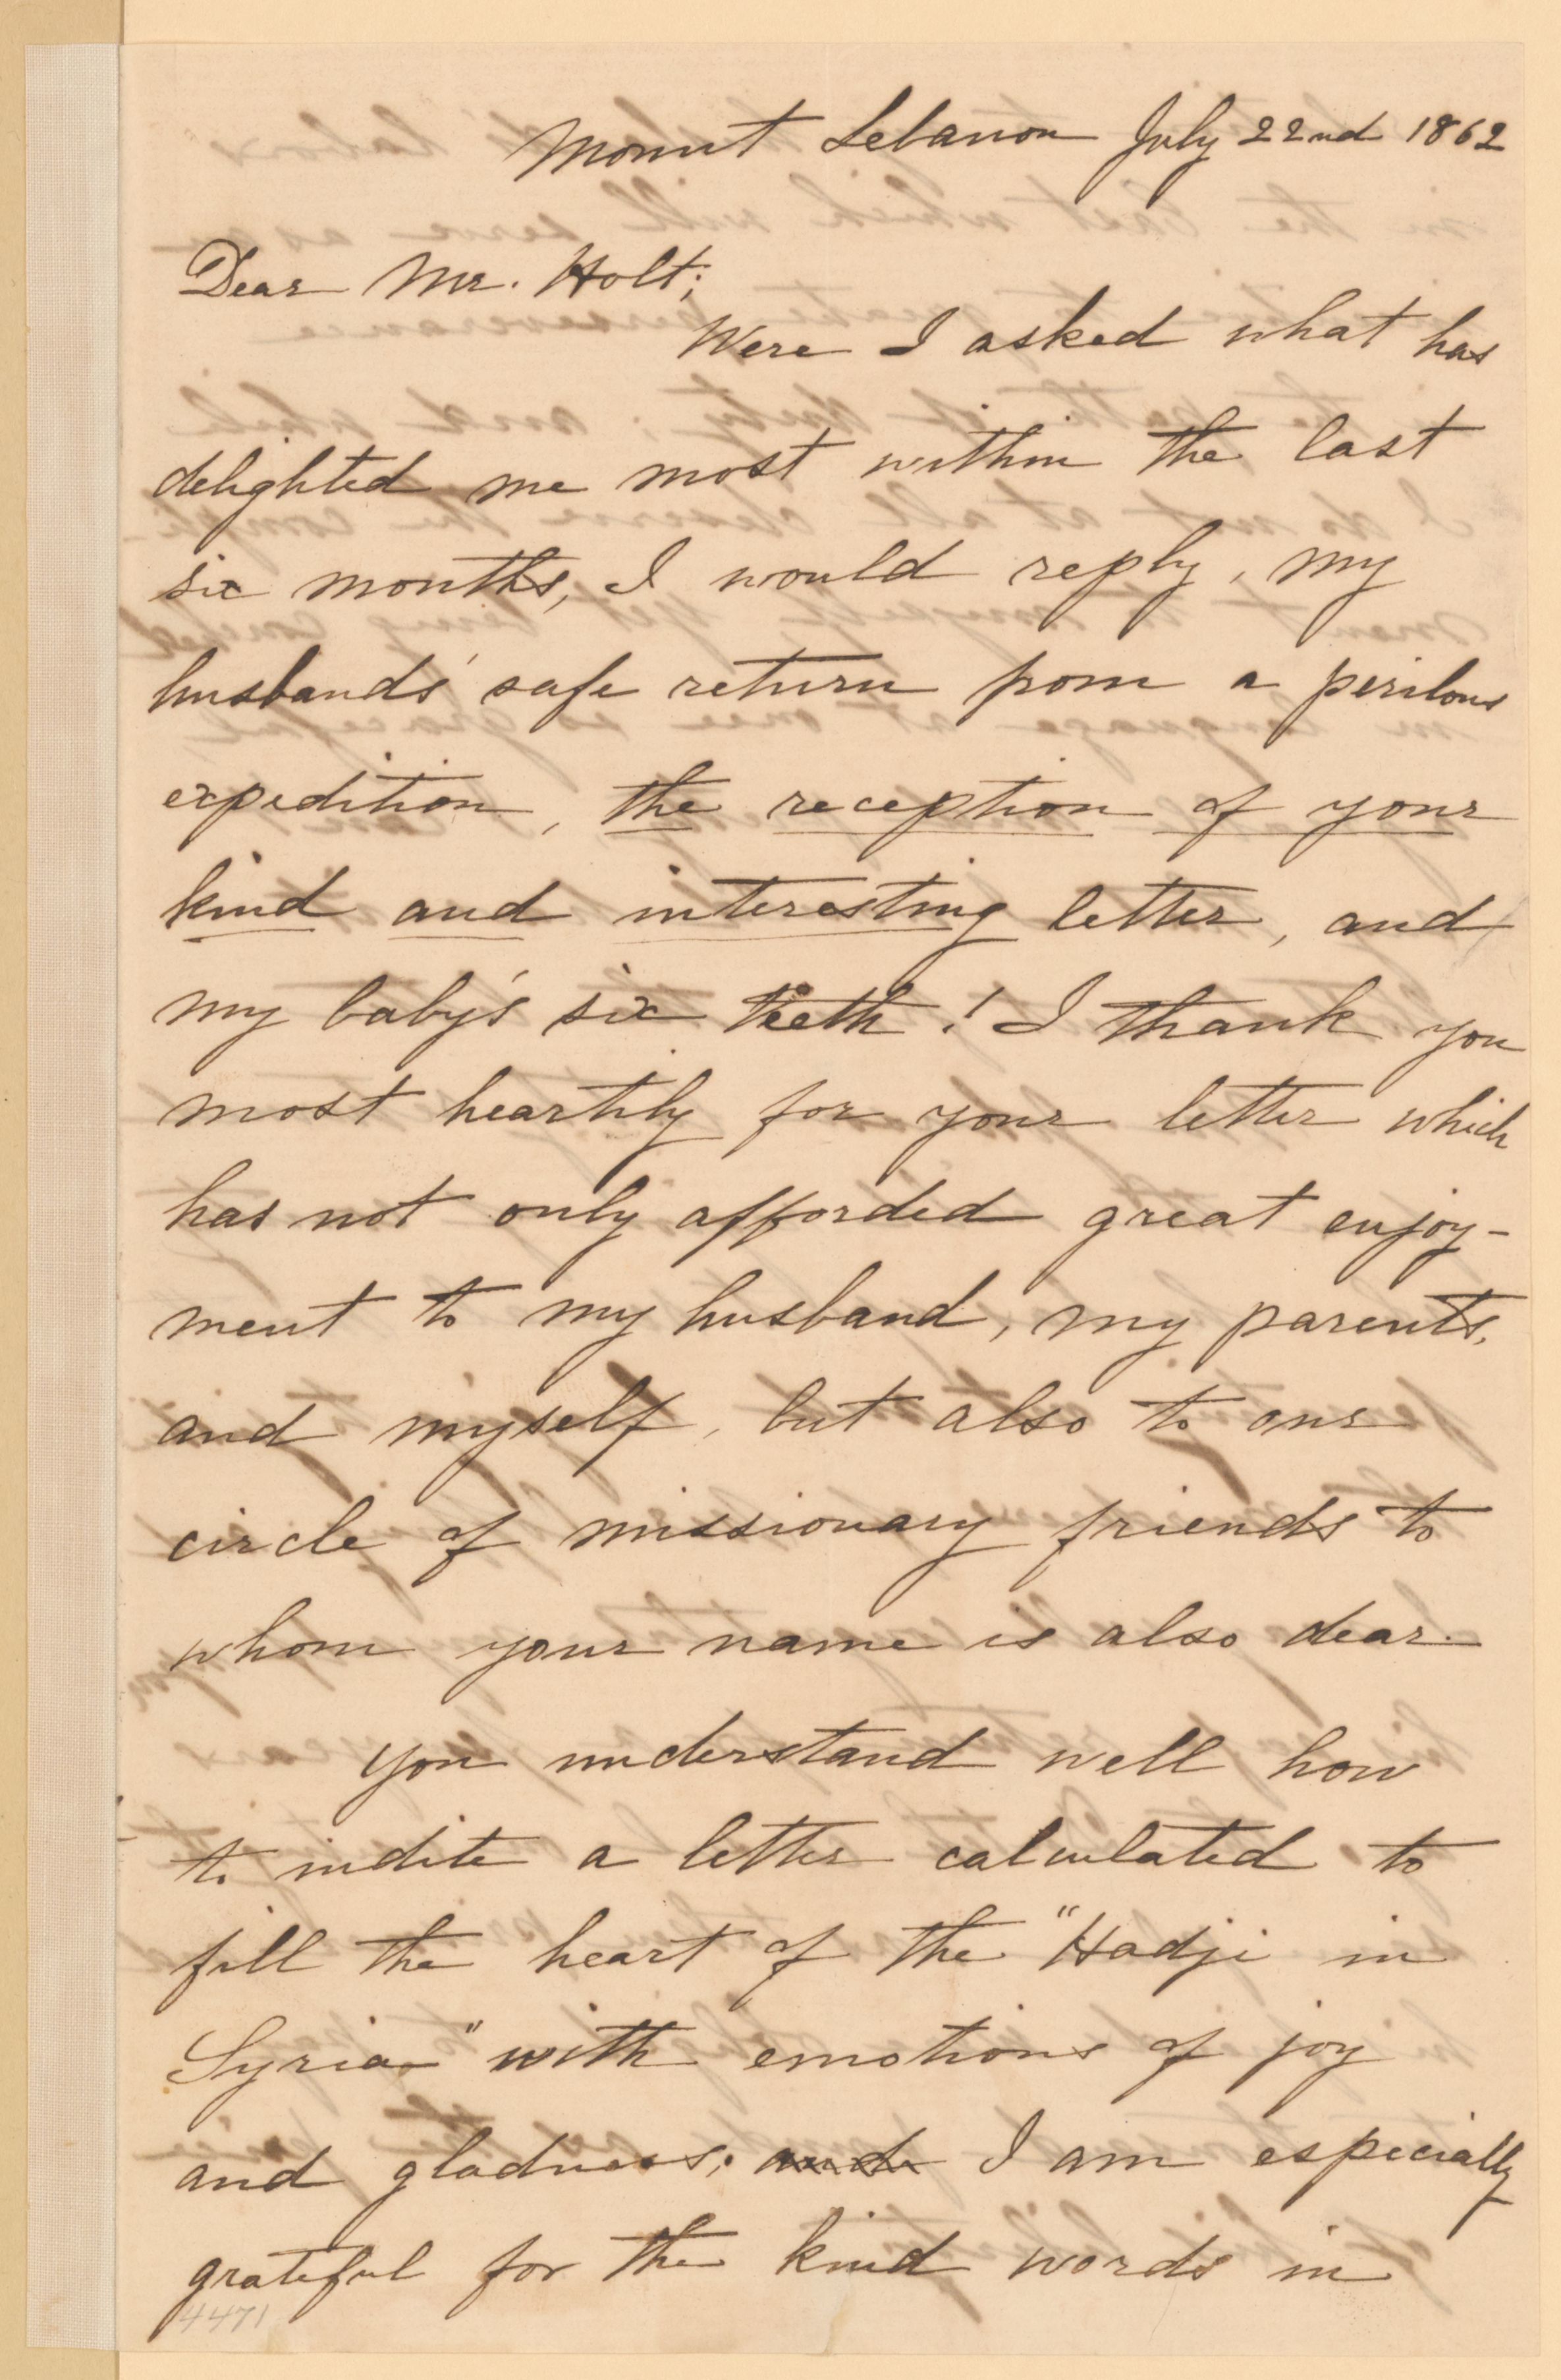 Mount Lebanon July 22nd 1862
Dear Mr. Holt;
Were I asked what has
delighted me most within the last
six months, I would reply, my
husbands' safe return from a perilous
expedition, the reception of your
kind and interesting letter, and
my baby's six teeth! I thank you
most heartily for your letter which
has not only afforded great enjoy-
ment to my husband, my parents,
and myself, but also to our
circle of missionary friends to
whom your name is also dear.
You understand well how
to indite a letter calculated to
fill the heart of the "Hadji in
Syria" with emotions of joy
and gladness; and I am especially
grateful for the kind words in
4471